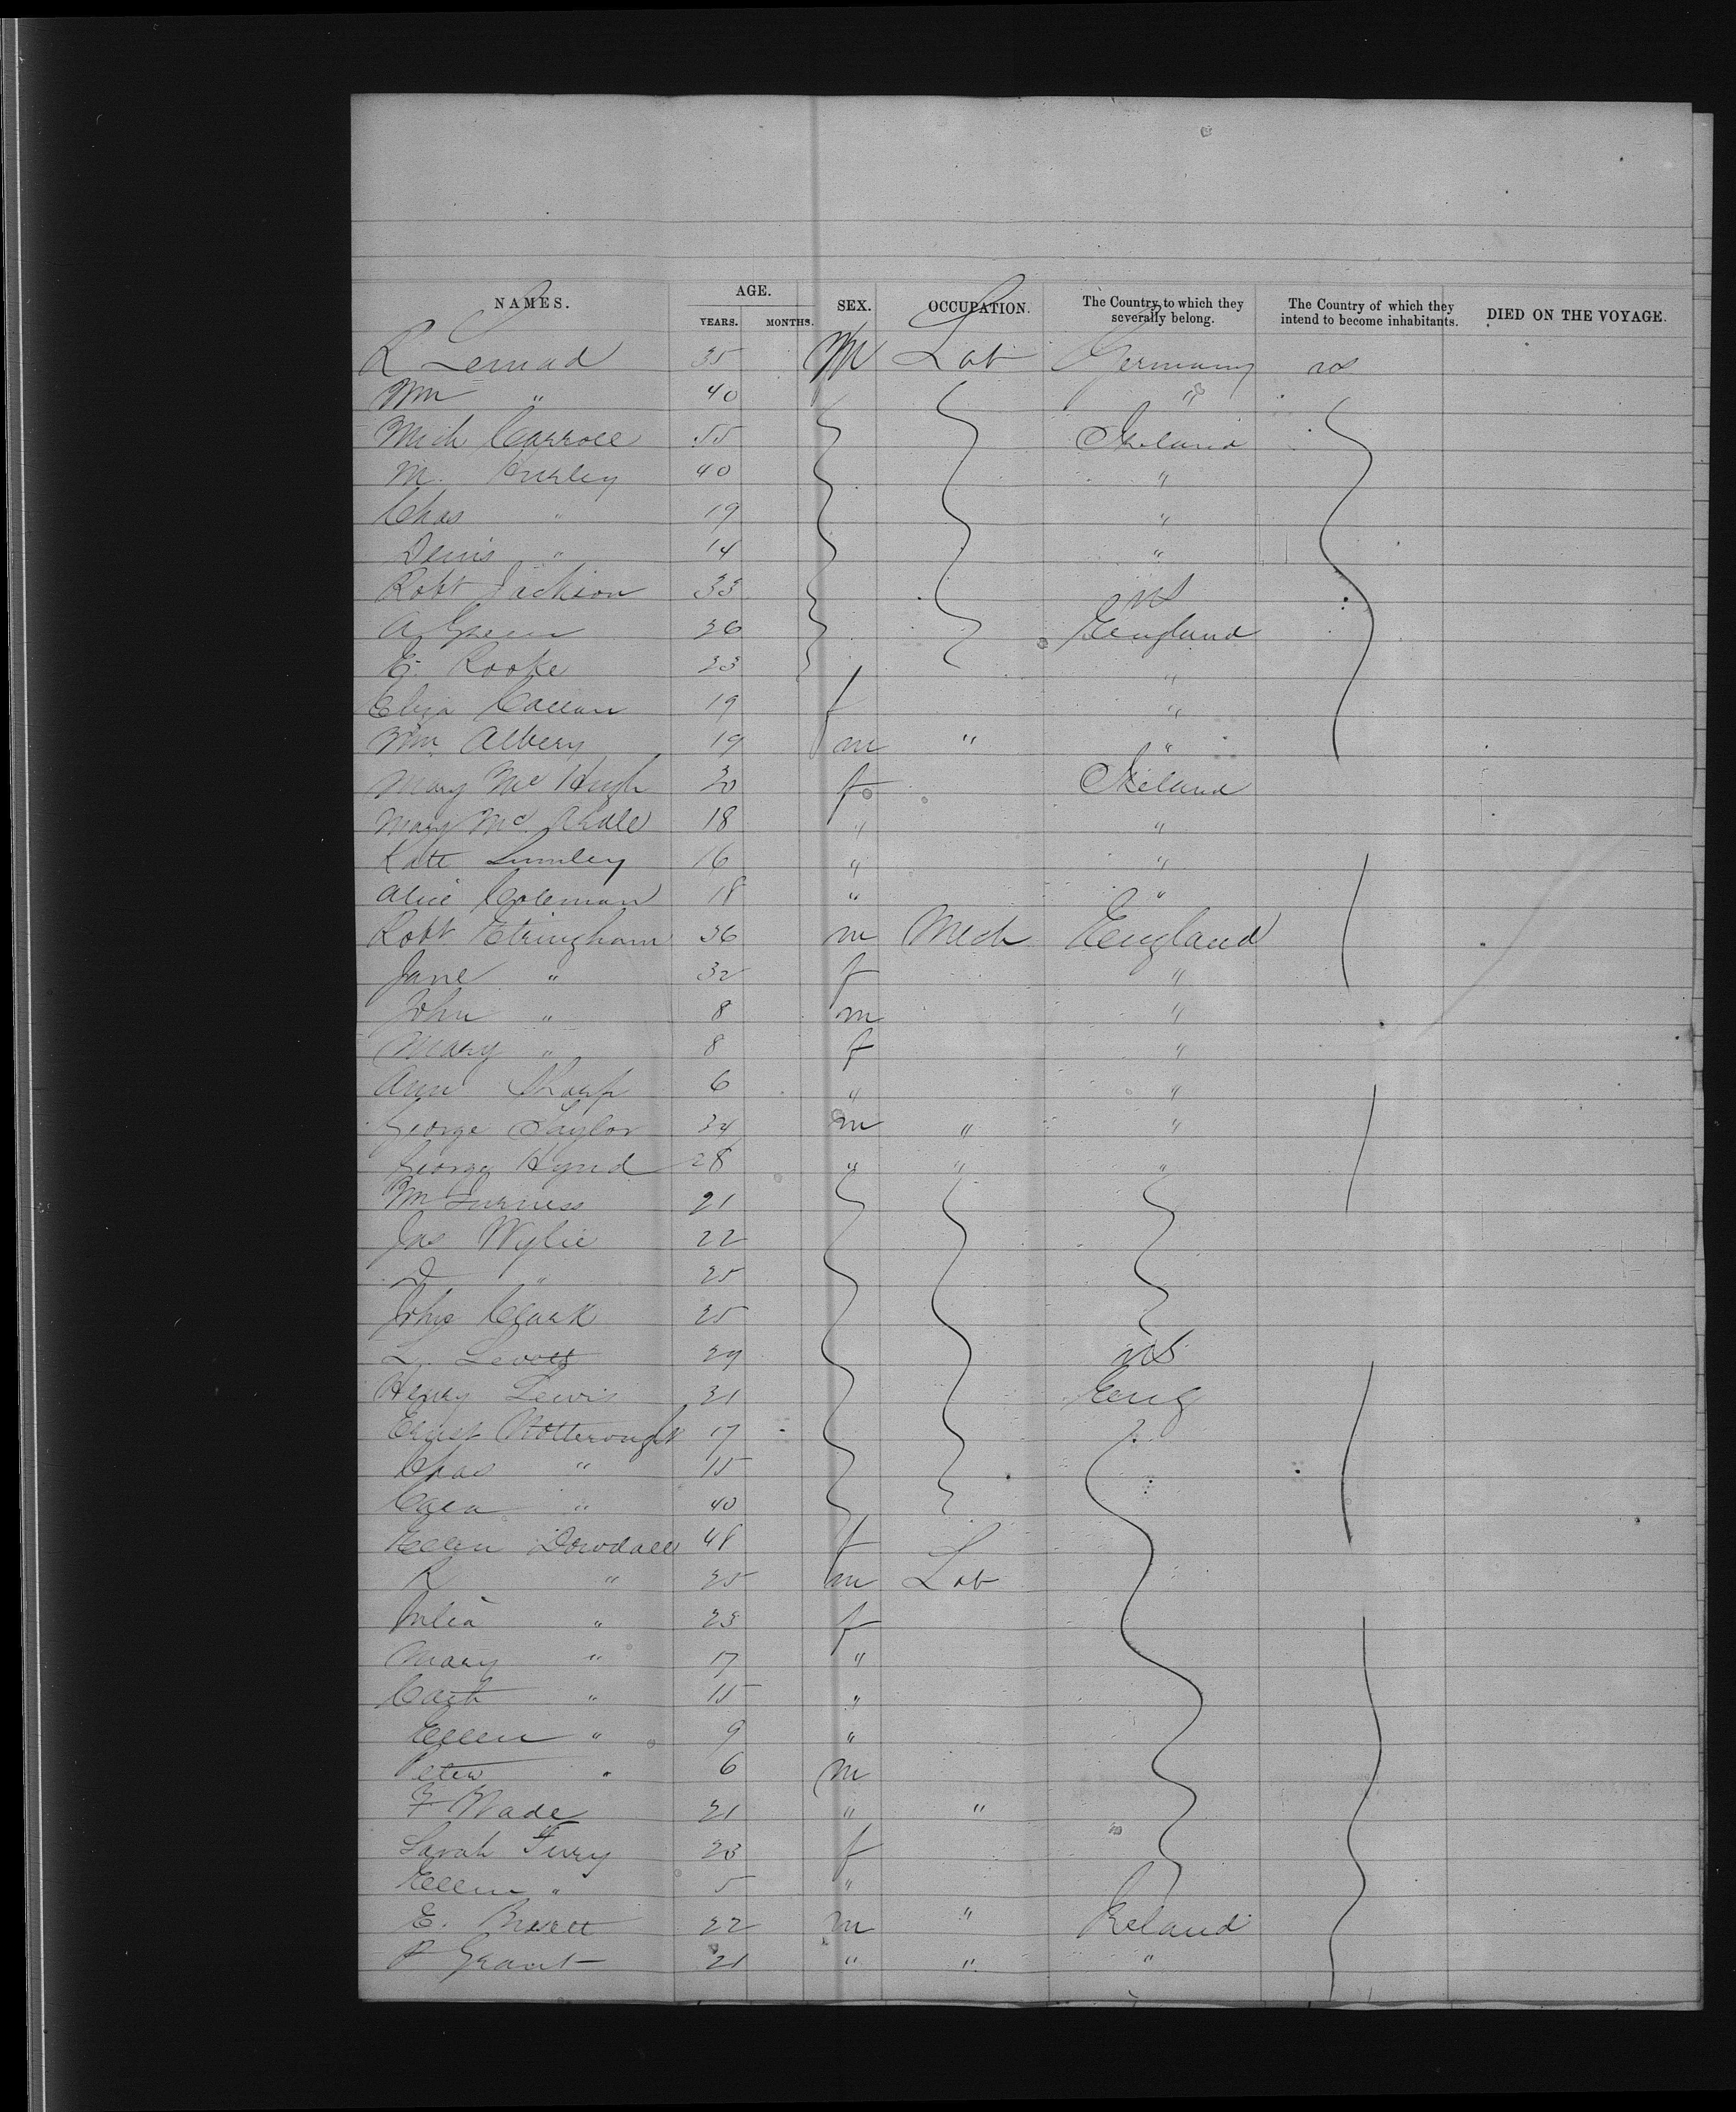 NAMES. AGE. YEARS. MONTHS. SEX. OCCUPATION. The Country to which they severally belong. The Country of which they intend to become inhabitants. DIED ON THE VOYAGE.
R 35 M Lab Germany us
Wm " 40 "
Mich Carroll 55 Ireland
M. Hurley 40 "
Chas " 19 "
Denis " 14 "
Robt Jackson 33 US
A Green 26 England
E. Rooke 23 "
Eliza Callan 19 f "
Wm Albery 19 m " "
Mary McHugh 20 f Ireland
Mary Mc 18 " "
Kate Lumley 16 " "
Alice Coleman 18 " "
Robt Etringham 36 m Mech England
Jane " 32 f "
John " 8 m "
Mary " 8 f "
Ann Sharp 6 " "
George Taylor 34 m " "
George Hynd 28 " " "
Wm Furness 21
Jas Wylie 22
" 25
John Clark 25
L. 29 US
Henry Lewis 21 Eng
Ernst 17
Chas " 15
" 40
Ellen Dowdall 48 f
R " 25 m Lab
Julia " 23 f
Mary " 17 "
Cath " 15 "
Ellen " 9 "
Peter " 6 m
F Wade 21 " "
Sarah Fury 23 f
Ellen " 5 "
E. Brett 22 m " Ireland
P Grant 21 " " "